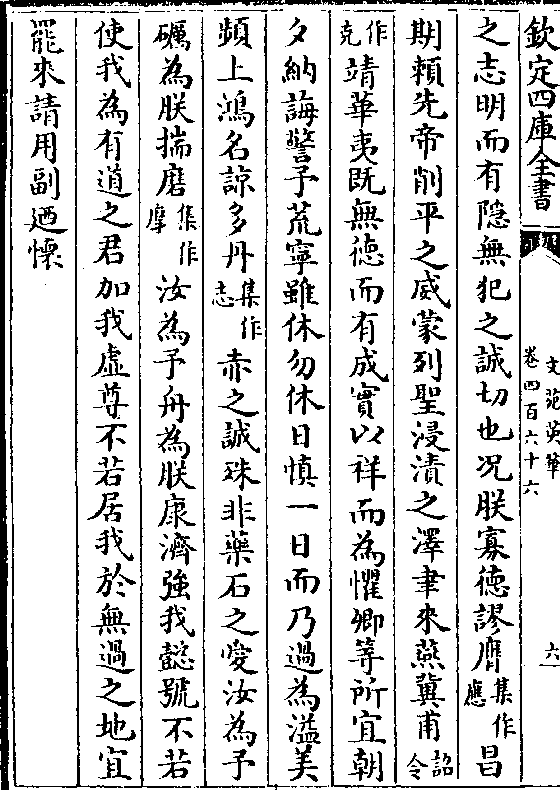 欽定四庫全書
文苑英華
卷四百六十六
六
之志明而有隱無犯之誠切也况朕寡德謬膺集作應昌
期頼先帝削平之威蒙列聖浸漬之澤聿來燕冀甫詔令
作克靖華夷既無德而有成實以祥而為懼卿等所宜朝
夕納誨警予荒寧雖休勿休日慎一日而乃過為溢美
頻上鴻名諒多丹集作志赤之誠殊非藥石之愛汝為予
礪為朕揣磨集作摩汝為予舟為朕康濟強我懿號不若
使我為有道之君加我虛尊不若居我於無過之地宜
罷來請用副迺懷